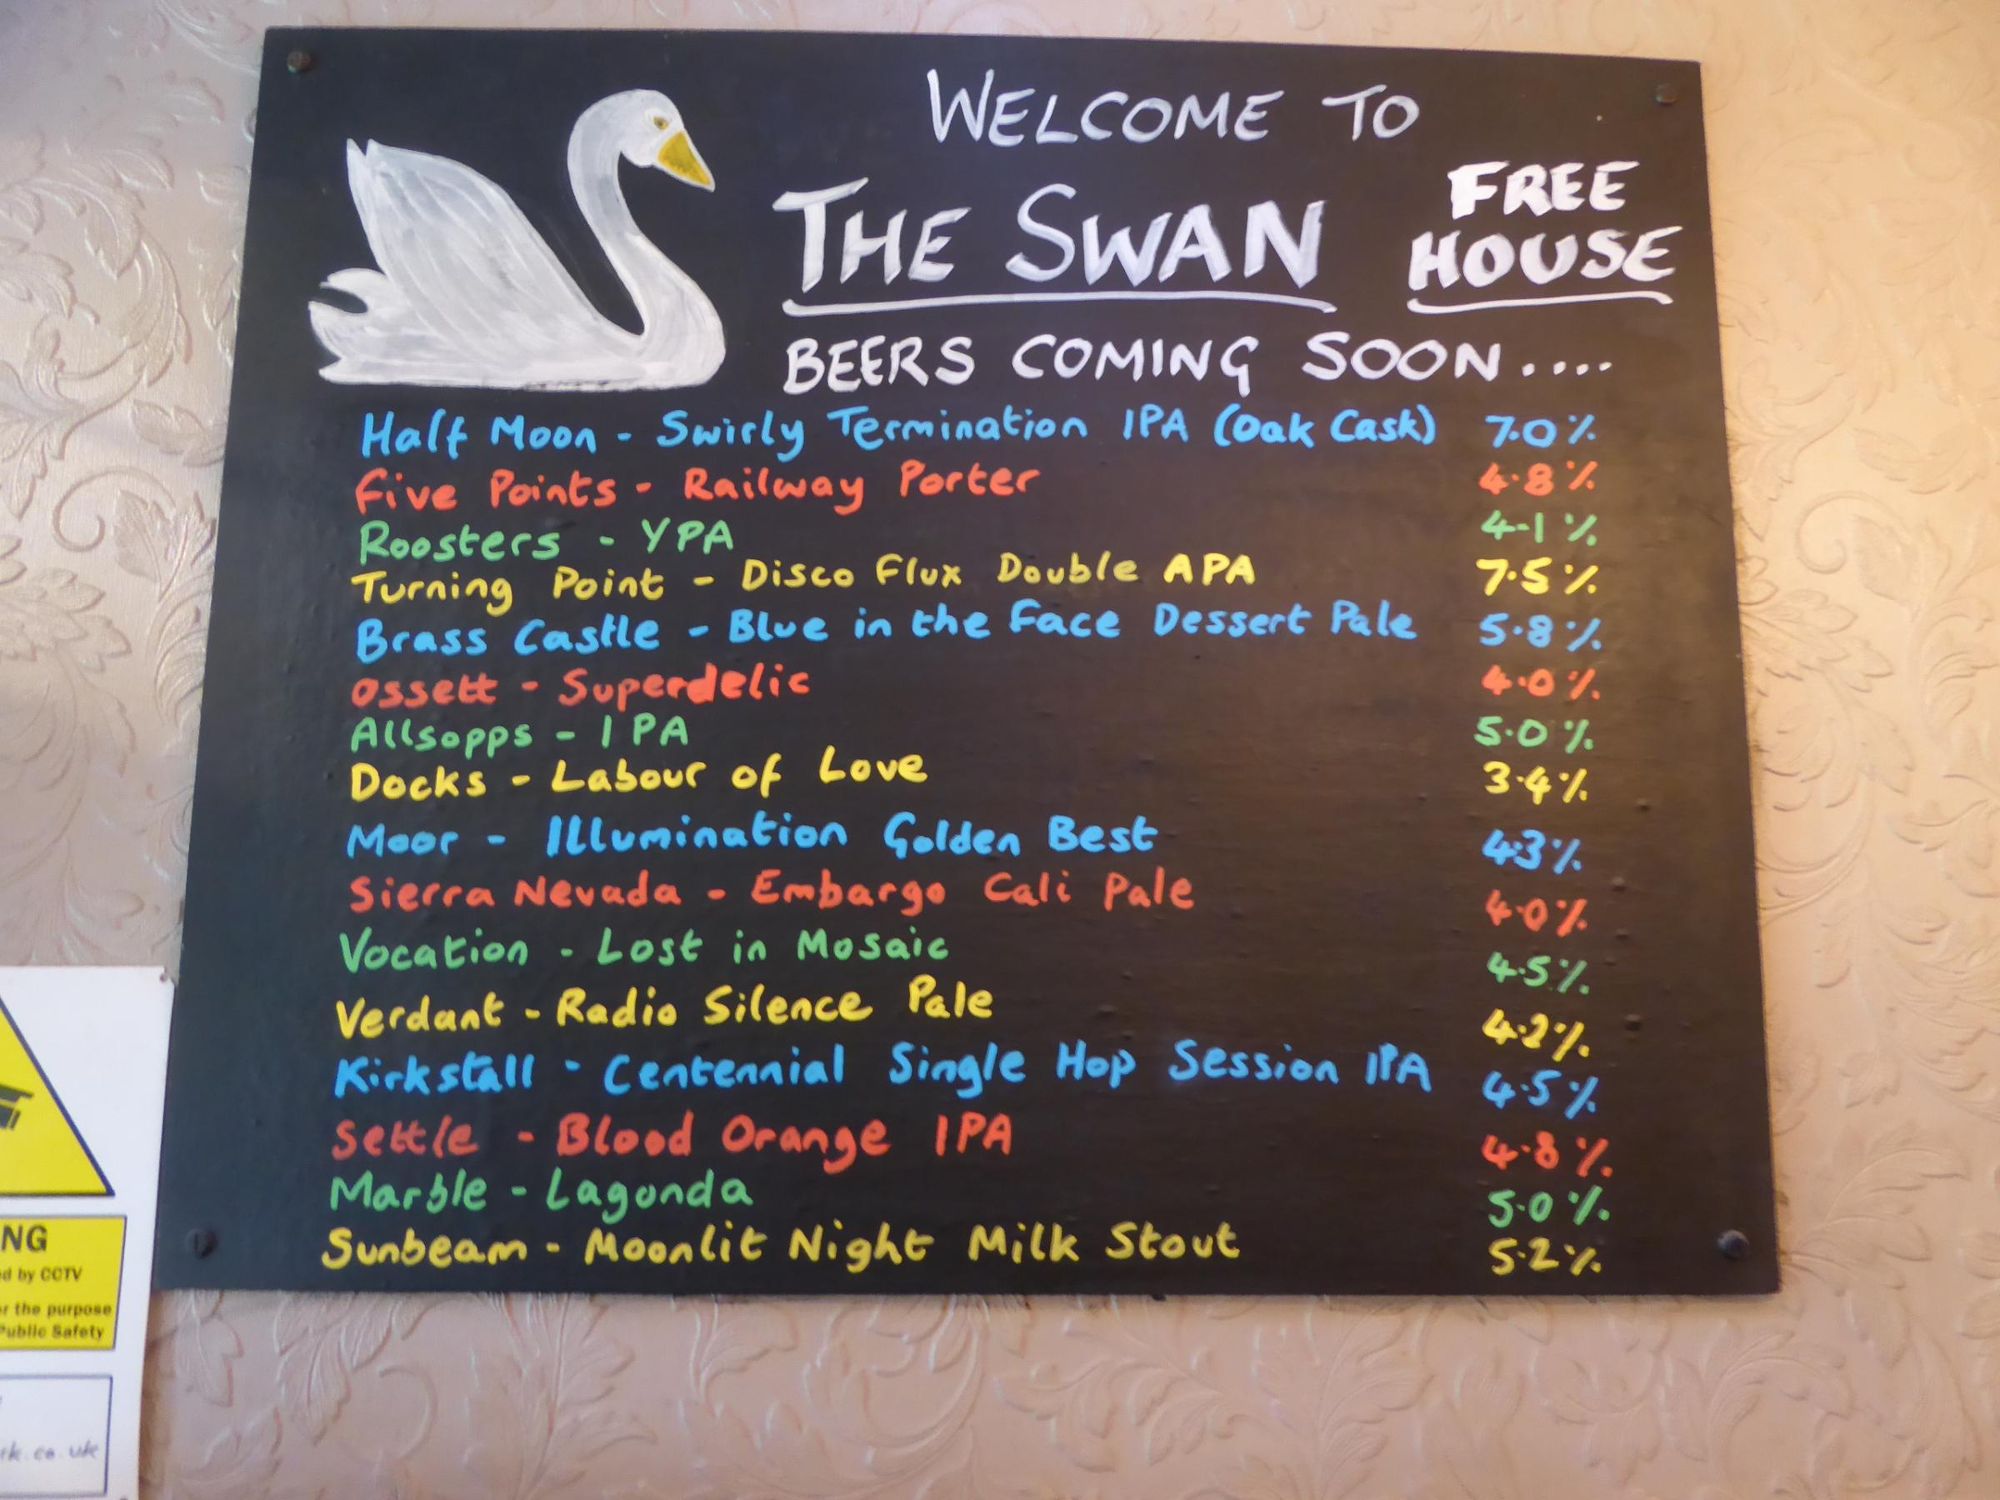 WELCOME TO
THE SWAN FREE HOUSE
BEERS COMING SOON....
Half Moon - Swirly Termination IPA (Oak Cask) 7.0%
Five Points - Railway Porter 4.8%
Roosters - YPA 4.1%
Turning Point - Disco Flux Double APA 7.5%
Brass Castle - Blue in the Face Dessert Pale 5.8%
Ossett - Superdelic 4.0%
Allsopps - IPA 5.0%
Docks - Labour of Love 3.4%
Moor - Illumination Golden Best 4.3%
Sierra Nevada - Embargo Cali Pale 4.0%
Vocation - Lost in Mosaic 4.5%
Verdant - Radio Silence Pale 4.2%
Kirkstall - Centennial Single Hop Session IPA 4.5%
Settle - Blood Orange IPA 4.8%
Marble - Lagonda 5.0%
Sunbeam - Moonlit Night Milk Stout 5.2%
NG
by CCTV
the purpose
Public Safety
.co.uk